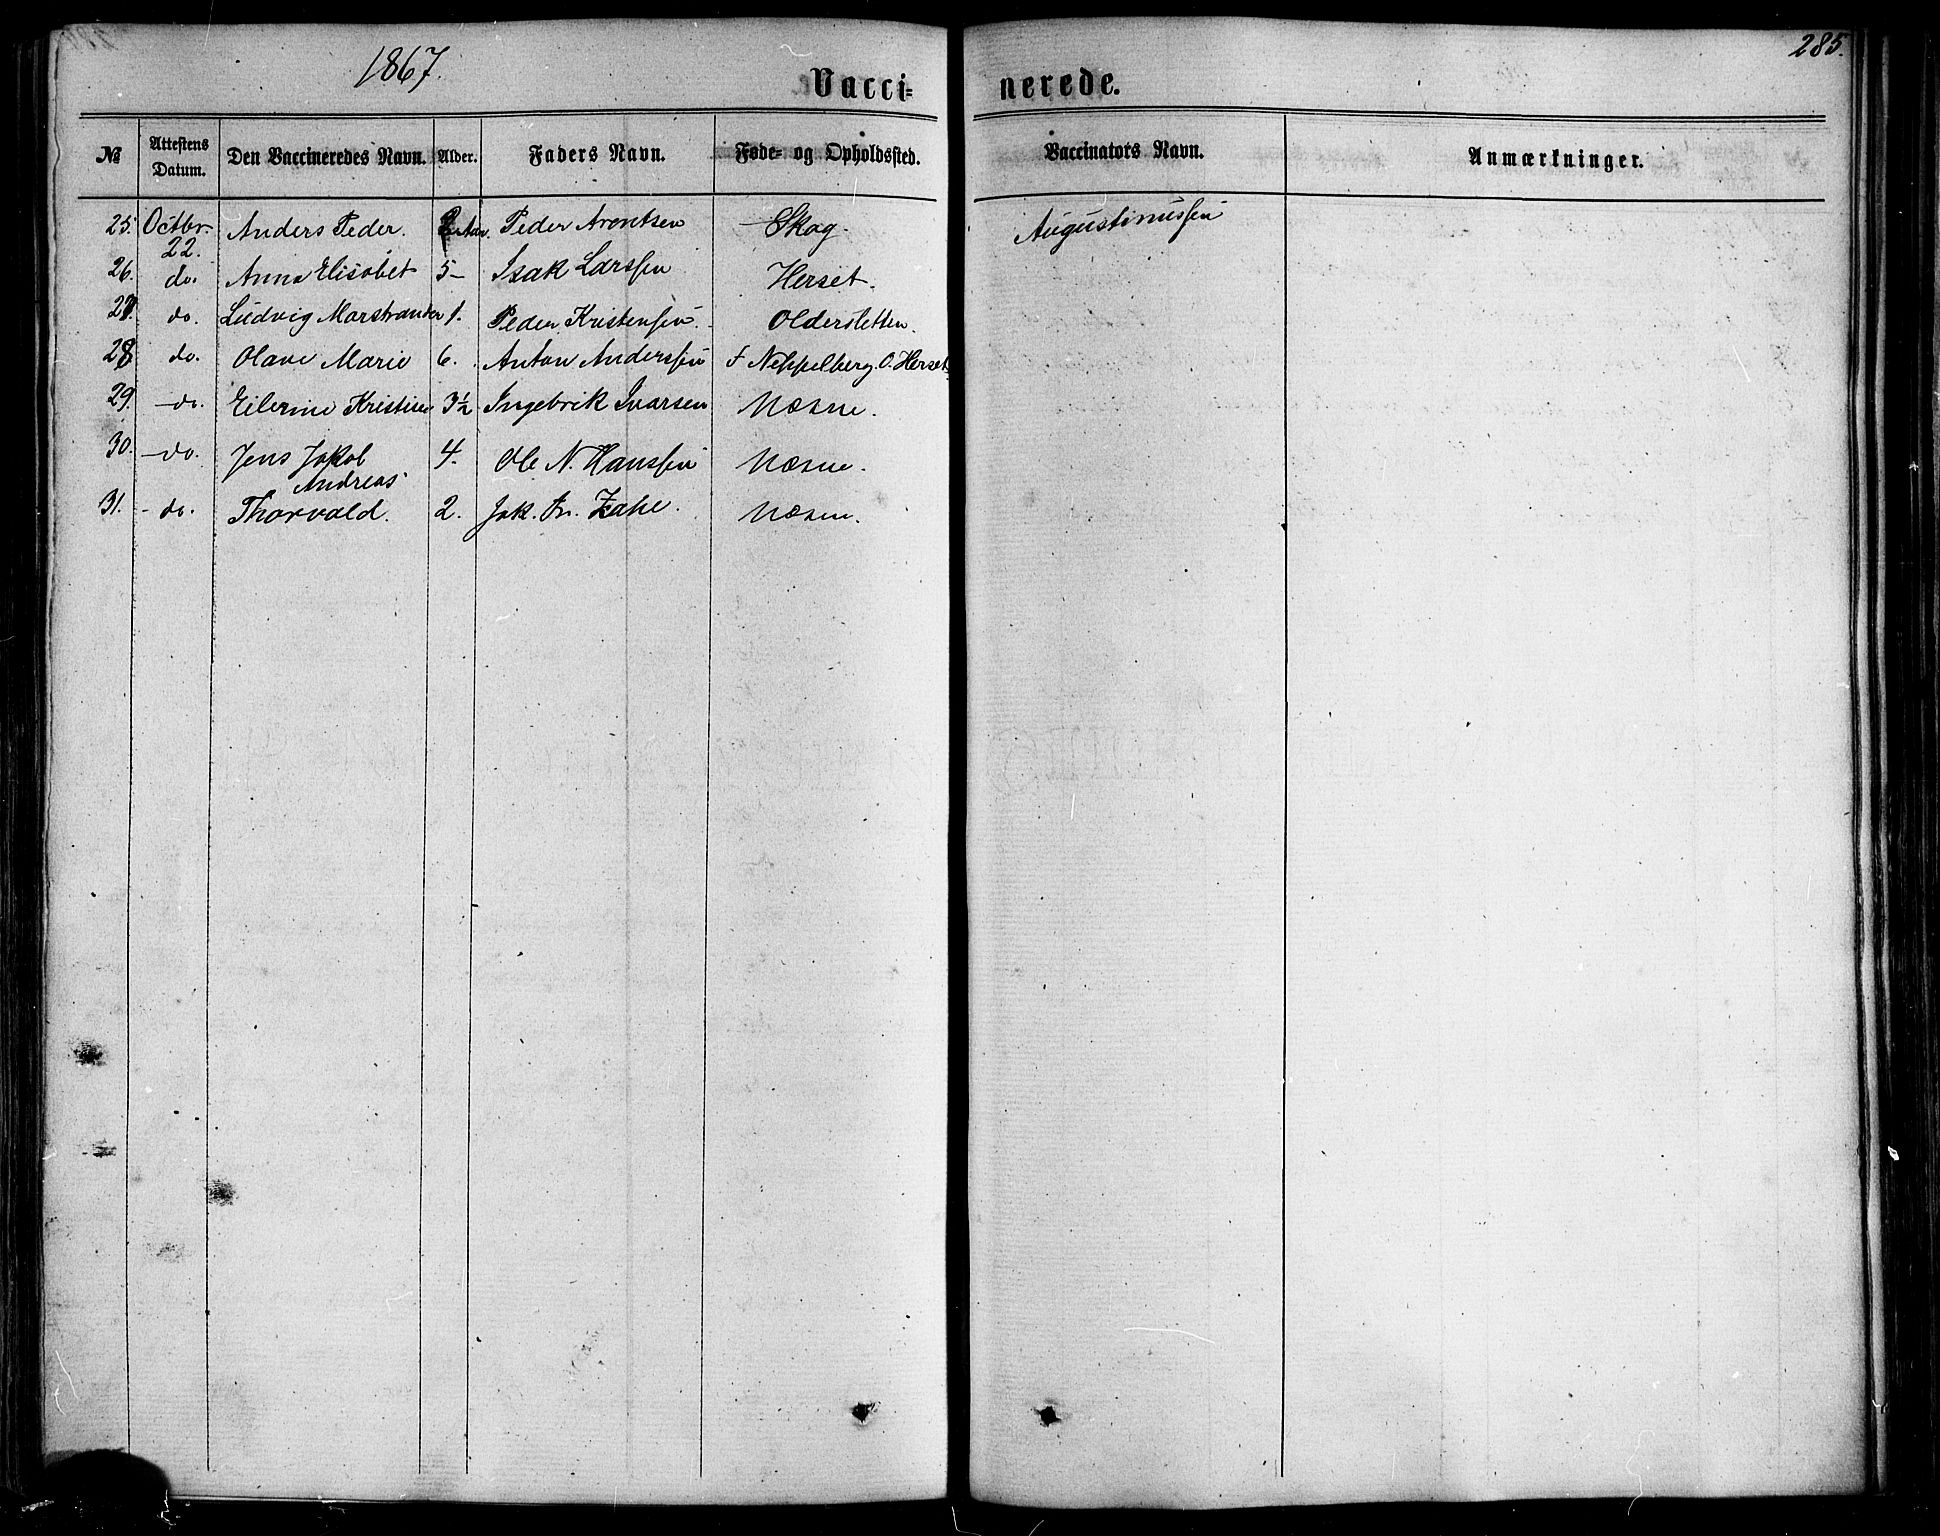 1867.
285.
Vacci= nerede.
№ Attestens Datum. Den Vaccineredes Navn. Alder. Faders Navn. Føde- og Opholdssted. Vaccinators Navn. Anmærkninger.
25. Octbr. 22. Anders Peder. Aar. Peder Arentsen Skog. Augustinussen
26. do. Anna Elisabet 5- Isak Larssen Herset.
27. do. Ludvig Marstrander 1. Peder Kristensen. Oldersletten.
28 do. Olave Marie 6. Anton Anderssen F Neppelberg. O. Herset.
29. -do. Eilerine Kristine 3½ Ingebrik Ivarsen Næsne.
30. -do. Jens Jakob Andreas 4. Ole N. Hanssen Næsne.
31. - do. Thorvald. 2. Jak. Fr. Zahl. Næsne.